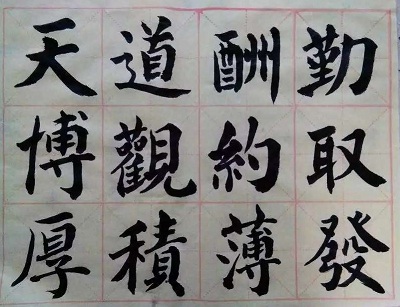 天道酬勤
博觀約取
厚積薄發